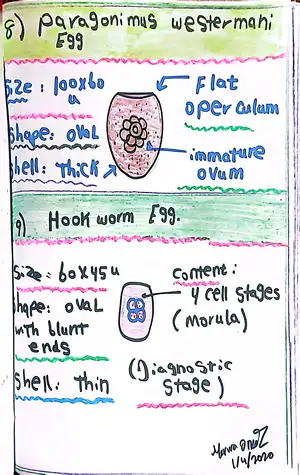 8) Paragonimus westermani
Egg
Size : 100x60
u
Flat
operculum
Shape: oval
Shell: Thick
immature
ovum
9) Hook worm Egg.
Size: 60x45u
content:
4 cell stages
(Morula)
Shape: oval
with blunt
ends
Shell: thin
(Diagnostic
Stage)
1/4/2020